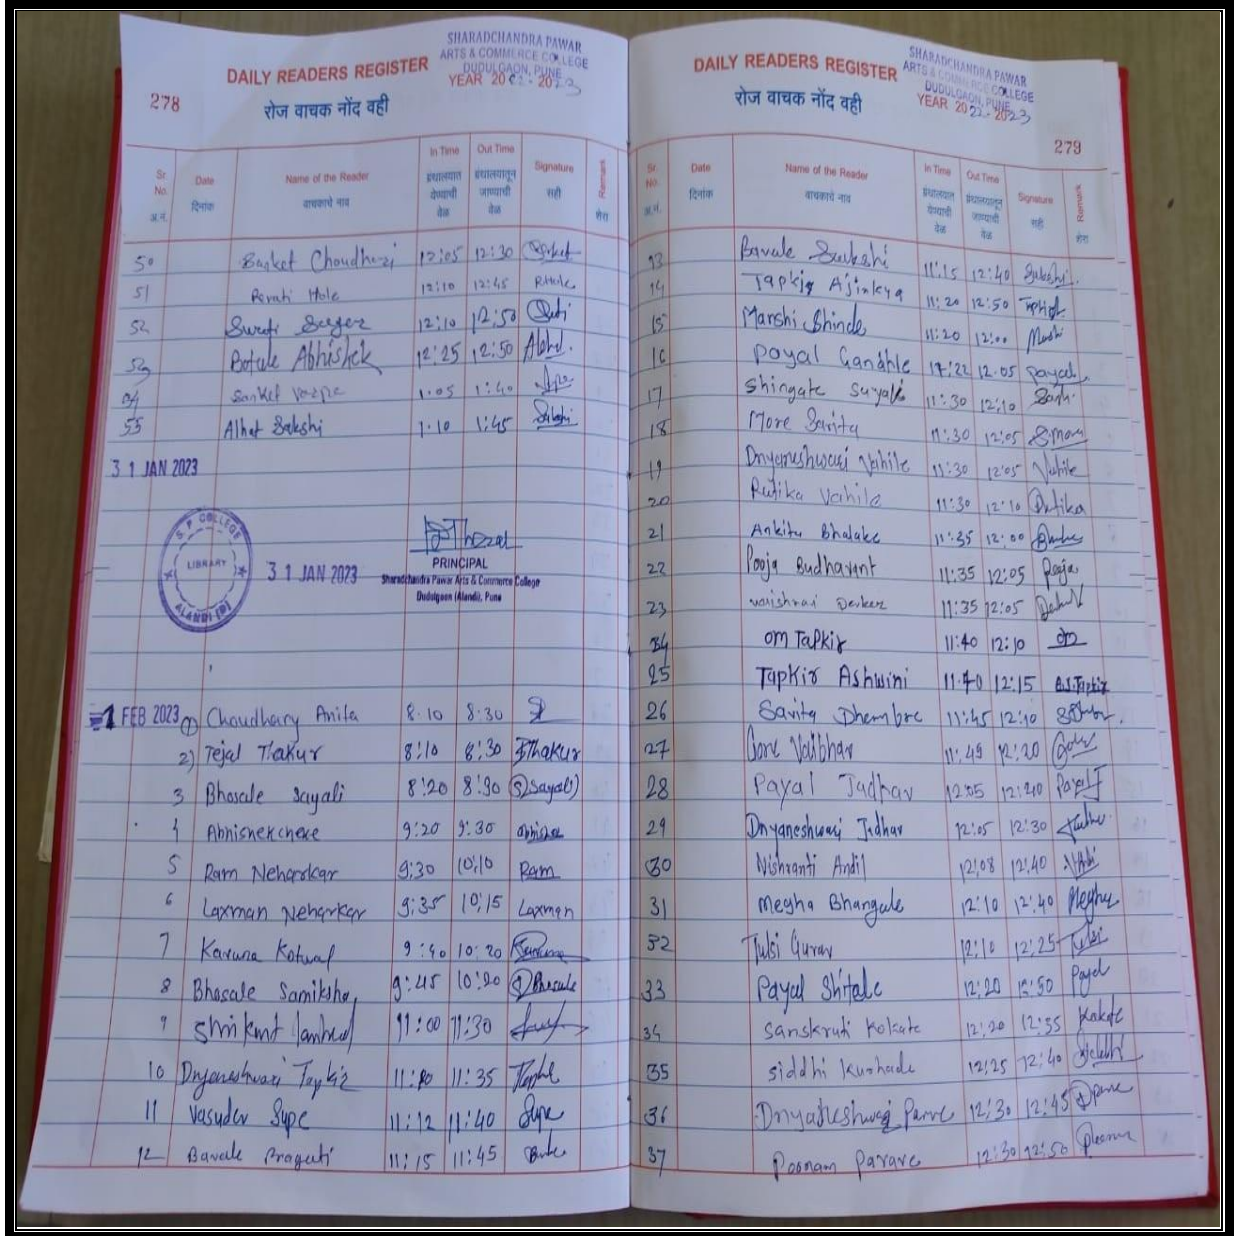 278
DAILY READERS REGISTER
रोज वाचक नोंद वही
SHARADCHANDRA PAWAR
ARTS & COMMERCE COLLEGE
DUDULGAON, PUNE
YEAR 2022-2023
Sr. No. Date Name of the Reader In Time Out Time Signature Remark
अ.नं. दिनांक वाचकाचे नाव ग्रंथालयात येण्याची वेळ ग्रंथालयातून जाण्याची वेळ सही शेरा
50 Sanket Choudhari 12:05 12:30
51 Revati Mole 12:10 12:45 R.Mole
52 12:10 12:50
53 Botule Abhishek 12:25 12:50
54 Sanket 1.05 1:40
55 Alhat Sakshi 1.10 1:45 Sakshi
31 JAN 2023
S. P. COLLEGE
LIBRARY
ALANDI (D)
31 JAN 2023
PRINCIPAL
Sharadchandra Pawar Arts & Commerce College
Dudulgaon (Alandi), Pune
-1 FEB 2023 1 Choudhary Anita 8.10 8:30
2) Tejal Thakur 8:10 8:30 Thakur
3 Bhosale Sayali 8:20 8:30 Sayali
4 9:20 9:30
5 Ram Neharkar 9:30 10:10 Ram
6 Laxman Neharkar 9:35 10:15 Laxman
7 Karuna Kotwal 9:40 10:20
8 Bhosale Samiksha 9:45 10:20 Bhosale
9 11:00 11:30
10 Dnyaneshwari Tapkir 11:10 11:35
11 Vasudev Supe 11:12 11:40 Supe
12 Bavale Pragati 11:15 11:45
DAILY READERS REGISTER
रोज वाचक नोंद वही
SHARADCHANDRA PAWAR
ARTS & COMMERCE COLLEGE
DUDULGAON, PUNE
YEAR 2022-2023
279
Sr. No. Date Name of the Reader In Time Out Time Signature Remark
अ.नं. दिनांक वाचकाचे नाव ग्रंथालयात येण्याची वेळ ग्रंथालयातून जाण्याची वेळ सही शेरा
13 Bavale Sakshi 11:15 12:40 Sakshi
14 Tapkir Ajinkya 11:20 12:50
15 Manshi Shinde 11:20 12:00
16 Payal Gandhle 12.05 Payal
17 Shingate Sayali 11:30 12:10
18 More Sarita 11:30 12:05
19 Dnyaneshwari Vahile 11:30 12:05 Vahile
20 Rutika Vahile 11:30 12:10 Rutika
21 Ankita Bhalake 11:35 12:00
22 Pooja Budhavant 11:35 12:05 Pooja
23 11:35 12:05
24 om Tapkir 11:40 12:10 om
25 Tapkir Ashwini 11:40 12:15 A.S.Tapkir
26 Savita Dhembre 11:45 12:10
27 Gore Vaibhav 11:45 12:20 Gore
28 Payal Jadhav 12:05 12:20 Payal J
29 Dnyaneshwari Jadhav 12:05 12:30
30 Nishranti Andil 12:08 12:40
31 Megha Bhangale 12:10 12:40 Megha
32 Tulsi Gurav 12:10 12:25 Tulsi
33 Payal Shitole 12:20 12:50 Payal
34 Sanskruti Kokate 12:20 12:35 Kokate
35 Siddhi Kurhade 12:25 12:40 Siddhi
36 Dnyaneshwari 12:30 12:45
37 Poonam Parave 12:30 12:50 Poonam